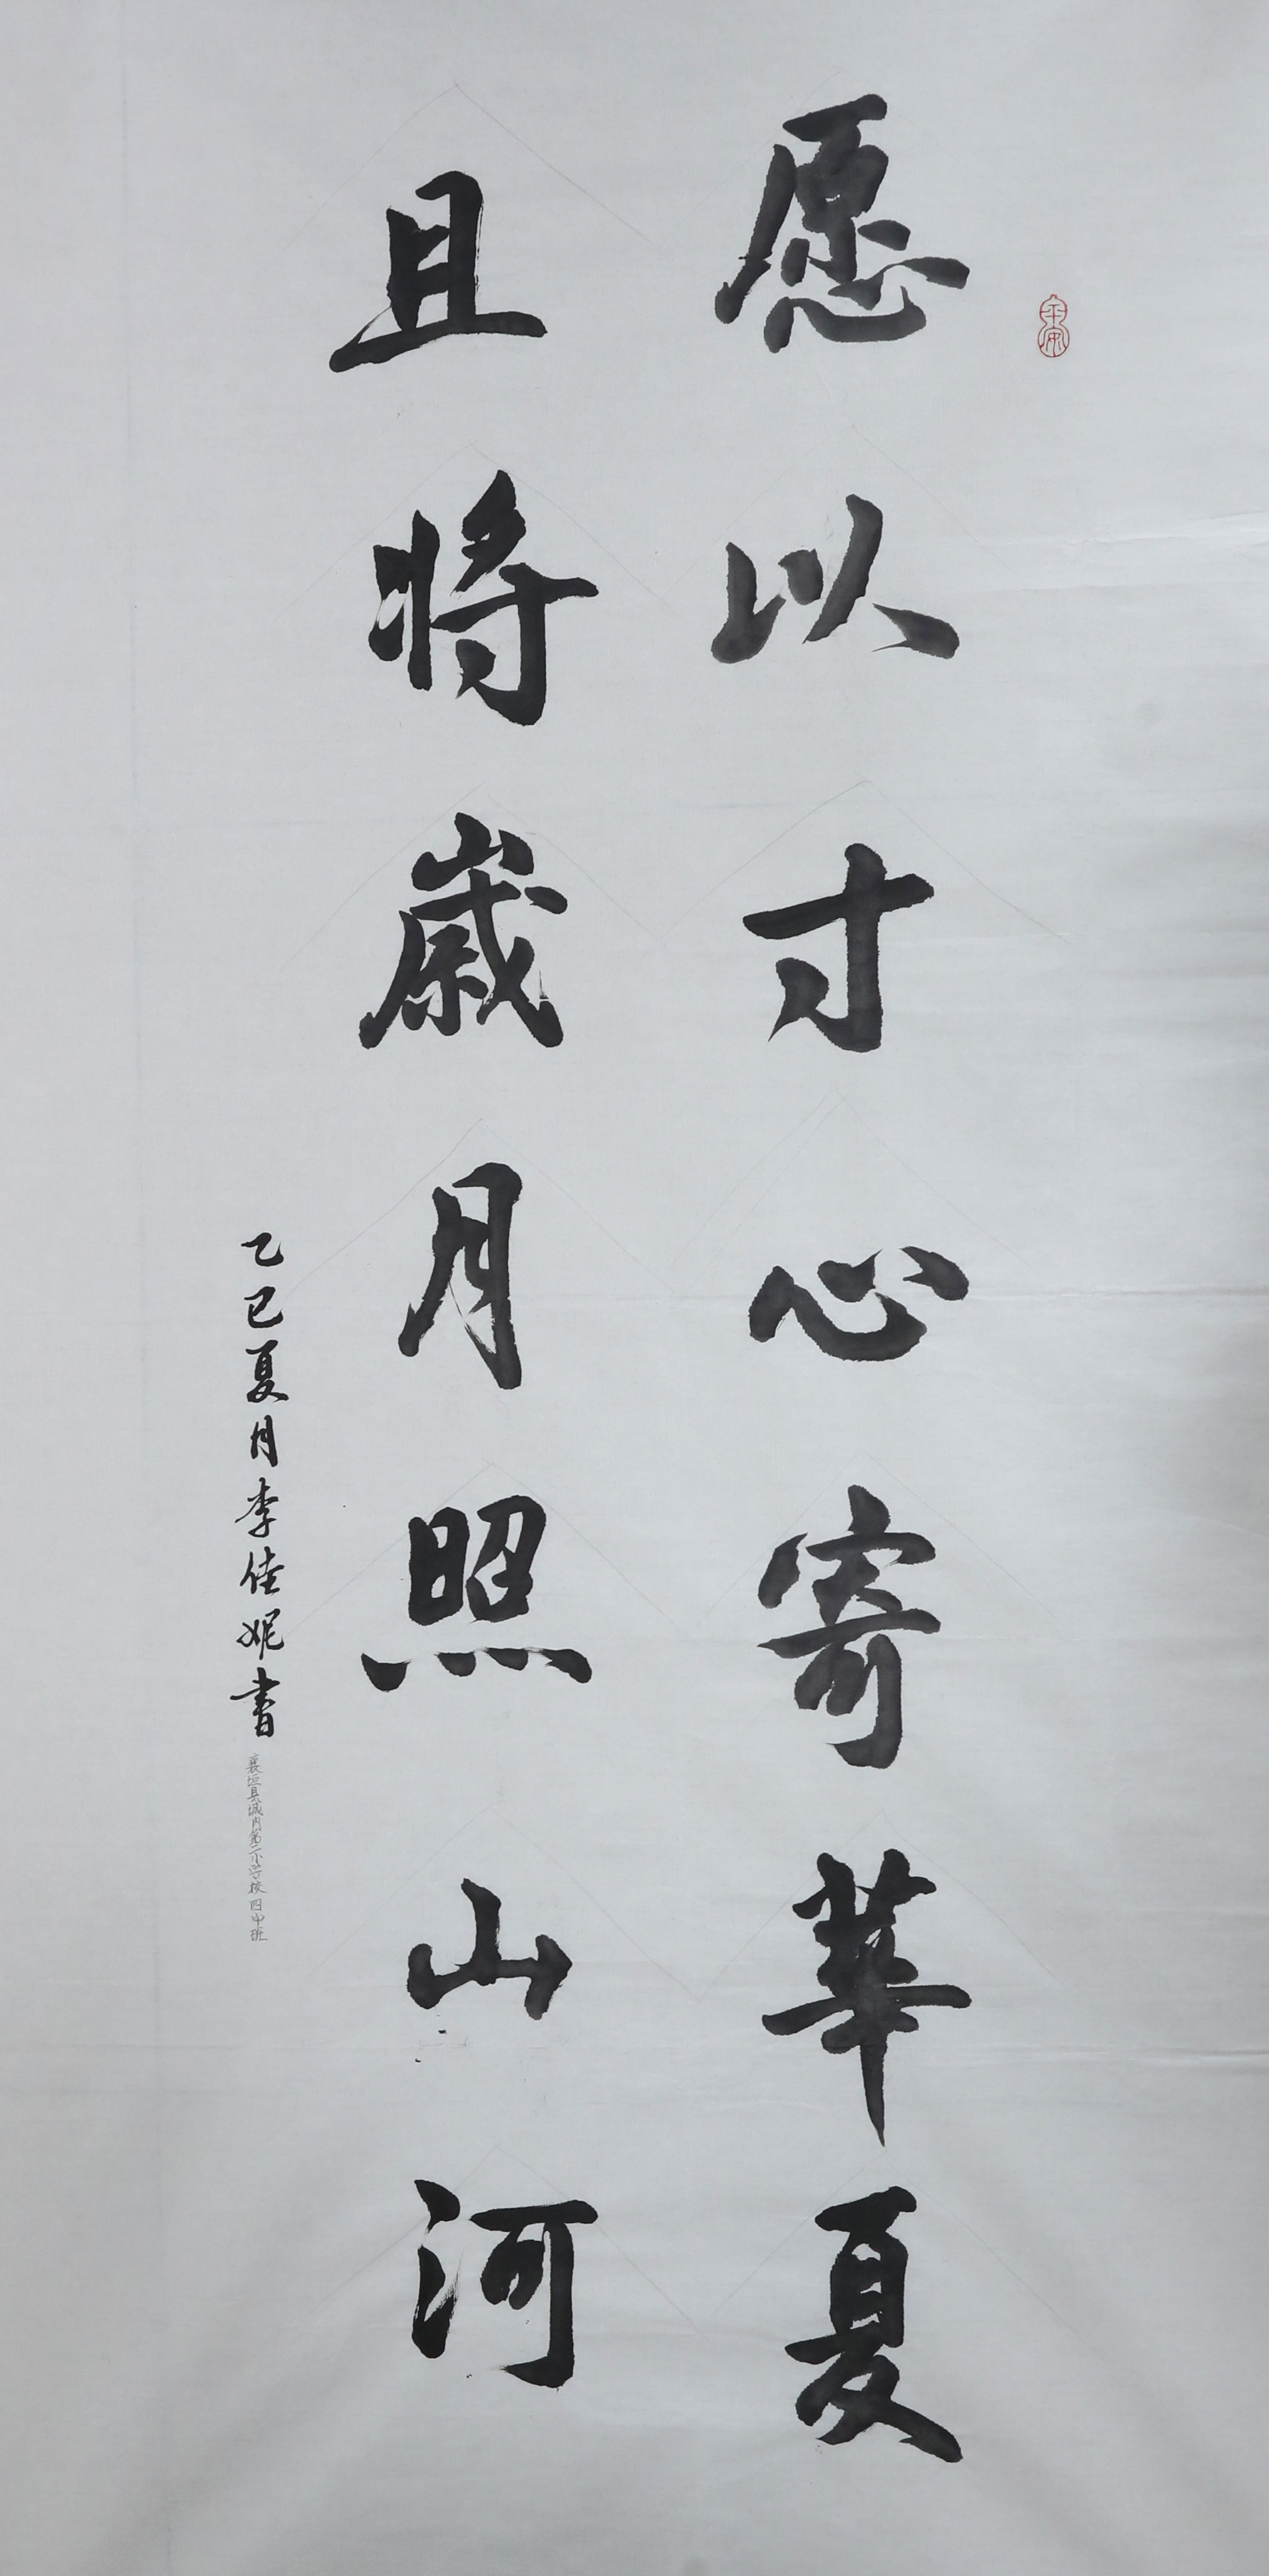 愿以寸心寄華夏
且将歲月照山河
乙巳夏月李佳妮书
襄垣县城内第二小学校四中班
平安